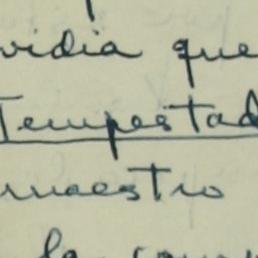 vidia que
Tempestad
maestro
la